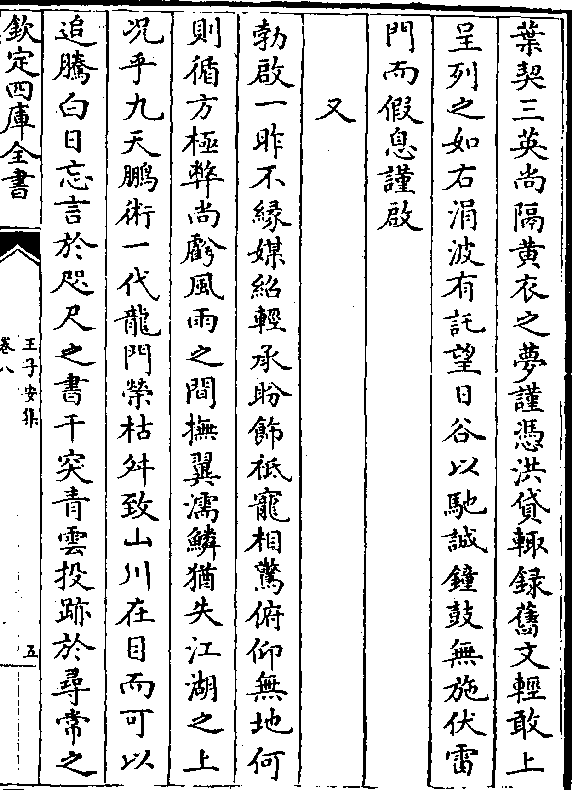 葉契三英尚隔黄衣之夢謹憑洪貸輙録舊文輕敢上
呈列之如右涓波有託望日谷以馳誠鐘鼓無施伏雷
門而假息謹啟
又
勃啟一昨不縁媒紹輕承盼飾祗寵相驚俯仰無地何
則循方極弊尚虧風雨之間撫翼濡鱗猶失江湖之上
况乎九天鵬術一代龍門榮枯舛致山川在目而可以
追騰白日忘言於咫尺之書干突青雲投跡於尋常之
欽定四庫全書
王子安集
卷八
五